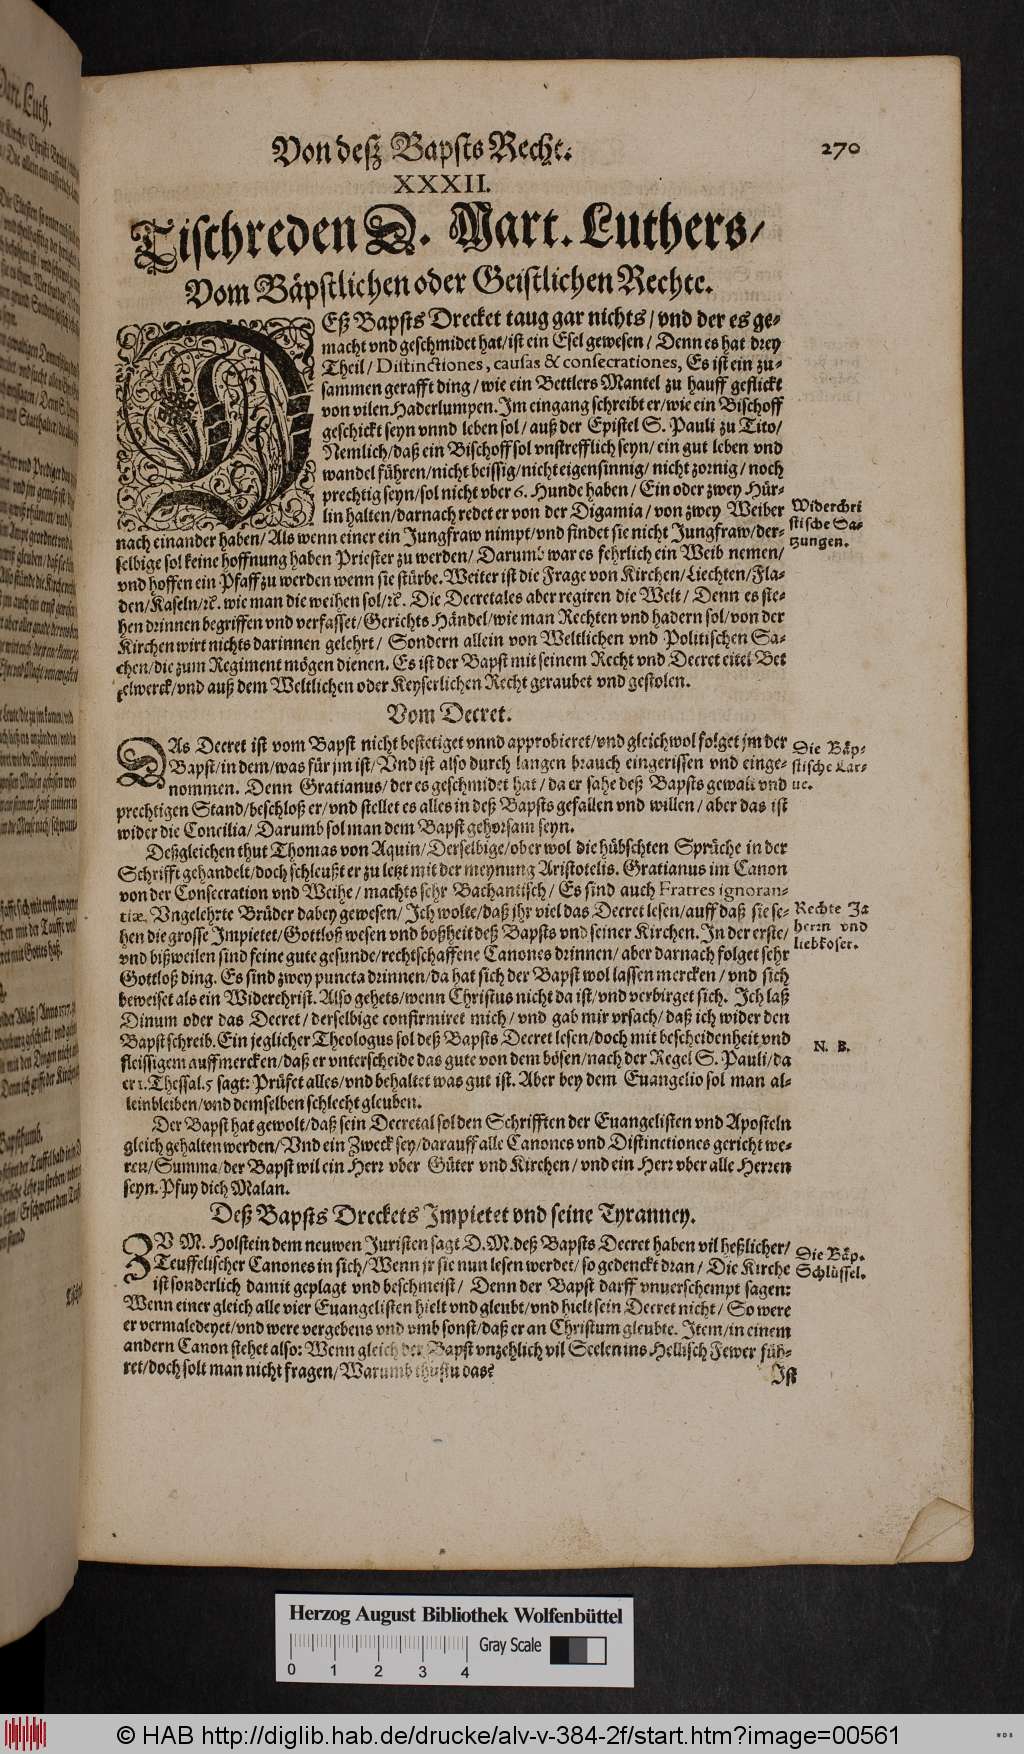 Von deß Bapsts Recht. 270
XXXII.
Tischreden D. Mart. Luthers/
Vom Bäpstlichen oder Geistlichen Rechte.
DEß Bapsts Drecket taug gar nichts/ vnd der es ge-
macht vnd geschmidet hat/ ist ein Esel gewesen/ Denn es hat drey
Theil/ Distinctiones, causas & consecrationes, Es ist ein zu-
sammen gerafft ding/ wie ein Bettlers Mantel zu hauff geflickt
von vilen Haderlumpen. Im eingang schreibt er/ wie ein Bischoff
geschickt seyn vnnd leben sol/ auß der Epistel S. Pauli zu Tito/
Nemlich/ daß ein Bischoff sol vnstrefflich seyn/ ein gut leben vnd
wandel führen/ nicht beissig/ nicht eigensinnig/ nicht zornig/ noch
prechtig seyn/ sol nicht vber 6. Hunde haben/ Ein oder zwey Hür-
lin halten/ darnach redet er von der Digamia/ von zwey Weiber
nach einander haben/ Als wenn einer ein Jungfraw nimpt/ vnd findet sie nicht Jungfraw/ der-
selbige sol keine hoffnung haben Priester zu werden/ Darumb war es fehrlich ein Weib nemen/
vnd hoffen ein Pfaff zu werden wenn sie stürbe. Weiter ist die Frage von Kirchen/ Liechten/ Fla-
den/ Kaseln/ ꝛc. wie man die weihen sol/ ꝛc. Die Decretales aber regiren die Welt/ Denn es ste-
hen drinnen begriffen vnd verfasset/ Gerichts Händel/ wie man Rechten vnd hadern sol/ von der
Kirchen wirt nichts darinnen gelehrt/ Sondern allein von Weltlichen vnd Politischen Sa-
chen/ die zum Regiment mögen dienen. Es ist der Bapst mit seinem Recht vnd Decret eitel Bet
telwerck/ vnd auß dem Weltlichen oder Keyserlichen Recht geraubet vnd gestolen.
Widerchri
stische Sa-
tzungen.
Vom Decret.
DAs Decret ist vom Bapst nicht bestetiget vnnd approbieret/ vnd gleichwol folget jm der
Bapst/ in dem/ was für jm ist/ Vnd ist also durch langen brauch eingerissen vnd einge-
nommen. Denn Gratianus/ der es geschmidet hat/ da er sahe deß Bapsts gewalt vnd
prechtigen Stand/ beschloß er/ vnd stellet es alles in deß Bapsts gefallen vnd willen/ aber das ist
wider die Concilia/ Darumb sol man dem Bapst gehorsam seyn.
Die Bäp-
stische Lar-
ue.
Deßgleichen thut Thomas von Aquin/ Derselbige/ ober wol die hübschten Sprüche in der
Schrifft gehandelt/ doch schleußt er zu letzt mit der meynung Aristotelis. Gratianus im Canon
von der Consecration vnd Weihe/ machts sehr Bachantisch/ Es sind auch Fratres ignoran-
tiæ, Vngelehrte Brüder dabey gewesen/ Ich wolte/ daß jhr viel das Decret lesen/ auff daß sie se-
hen die grosse Impietet/ Gottloß wesen vnd boßheit deß Bapsts vnd seiner Kirchen. In der erste/
vnd bißweilen sind feine gute gesunde/ rechtschaffene Canones drinnen/ aber darnach folget sehr
Gottloß ding. Es sind zwey puncta drinnen/ da hat sich der Bapst wol lassen mercken/ vnd sich
beweiset als ein Widerchrist. Also gehets/ wenn Christus nicht da ist/ vnd verbirget sich. Ich laß
Dinum oder das Decret/ derselbige confirmiret mich/ vnd gab mir vrsach/ daß ich wider den
Bapst schreib. Ein jeglicher Theologus sol deß Bapsts Decret lesen/ doch mit bescheidenheit vnd
fleissigem auffmercken/ daß er vnterscheide das gute von dem bösen/ nach der Regel S. Pauli/ da
er 1. Thessal. 5 sagt: Prüfet alles/ vnd behaltet was gut ist. Aber bey dem Euangelio sol man al-
lein bleiben/ vnd demselben schlecht gleuben.
Rechte Ja
herrn vnd
liebkoser.
N. B.
Der Bapst hat gewolt/ daß sein Decretal sol den Schrifften der Euangelisten vnd Aposteln
gleich gehalten werden/ Vnd ein Zweck sey/ darauff alle Canones vnd Distinctiones gericht we-
ren/ Summa/ der Bapst wil ein Herr vber Güter vnd Kirchen/ vnd ein Herr vber alle Herren
seyn. Pfuy dich Malan.
Deß Bapsts Dreckets Impietet vnd seine Tyranney.
ZV M. Holstein dem neuwen Juristen sagt D. M. deß Bapsts Decret haben vil heßlicher/
Teuffelischer Canones in sich/ Wenn jr sie nun lesen werdet/ so gedenckt dran/ Die Kirche
ist sonderlich damit geplagt vnd beschmeist/ Denn der Bapst darff vnuerschempt sagen:
Wenn einer gleich alle vier Euangelisten hielt vnd gleubt/ vnd hielt sein Decret nicht/ So were
er vermaledeyet/ vnd were vergebens vnd vmb sonst/ daß er an Christum gleubte. Item/ in einem
andern Canon stehet also: Wenn gleich der Bapst vnzehlich vil Seelen ins Hellisch Fewer füh-
ret/ doch solt man nicht fragen/ Warumb thustu das?
Die Bäp.
Schlüssel.
Ist
Herzog August Bibliothek Wolfenbüttel
Gray Scale
0 1 2 3 4
© HAB http://diglib.hab.de/drucke/alv-v-384-2f/start.htm?image=00561